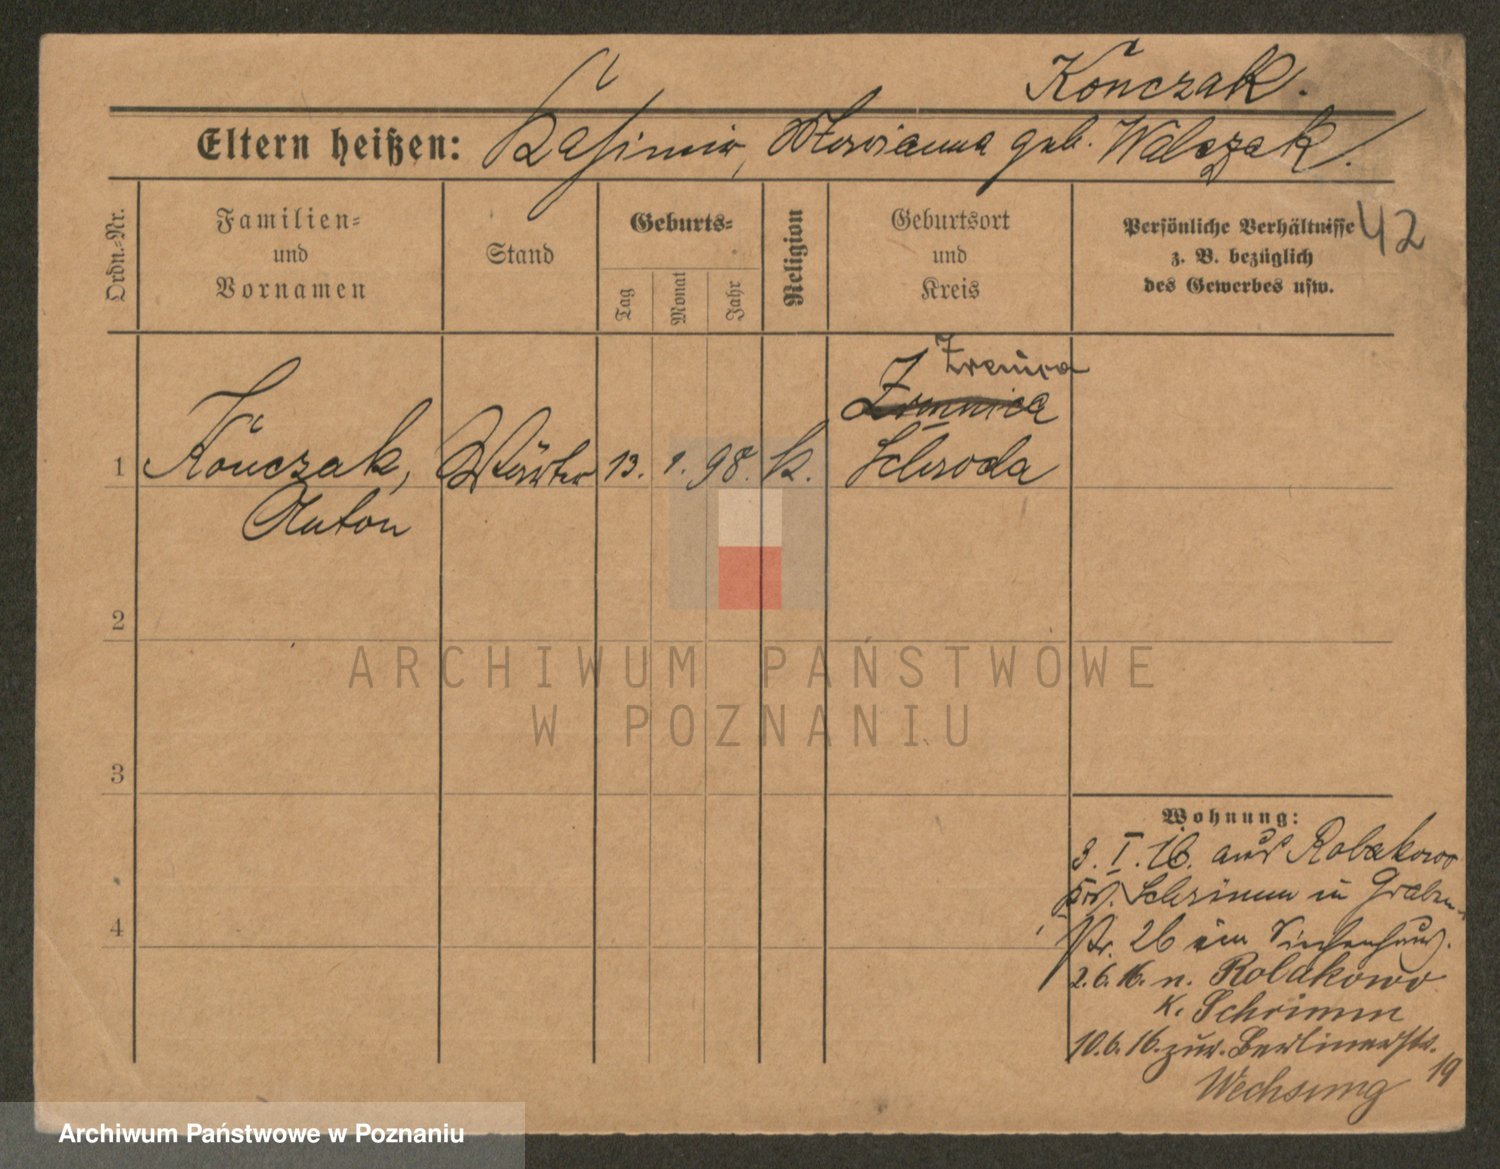 Kończak.
Eltern heißen: Kasimir, Marianna geb. Walczak.
Ordn.-Nr.
Familien-
und
Vornamen
Stand
Geburts-
Tag
Monat
Jahr
Religion
Geburtsort
und
Kreis
Persönliche Verhältnisse
z. B. bezüglich
des Gewerbes usw.
42
Zrenica
Schroda
1 Kończak, Wärter 13. 1. 98. k.
Anton
2
ARCHIWUM PAŃSTWOWE
W POZNANIU
3
4
Wohnung:
3. I. 16. aus Robakowo
Krs. Schrimm in Graben-
str. 26 im Siechenhaus.
2.6.16. n. Robakowo
K. Schrimm
10.6.16. zur. Berlinerstr.
19
Wechsung
Archiwum Państwowe w Poznaniu